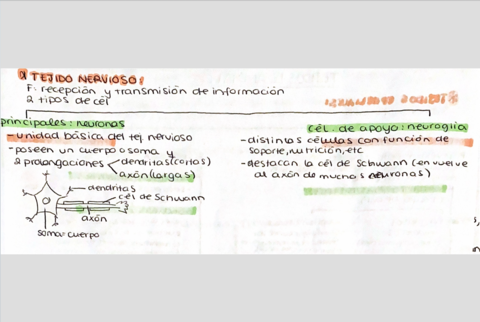 a) TEJIDO NERVIOSO:
F: recepción y transmisión de información
2 tipos de cél
principales: neuronas
- unidad básica del tej nervioso
- poseen un cuerpo o soma y
2 prolongaciones dendritas (cortas)
axón (largas)
dendritas
cél de Schwann
axón
soma: cuerpo
cél. de apoyo: neuroglia
- distintas células con función de
soporte, nutrición, etc
- destacan la cél de Schwann (envuelve
al axón de muchas neuronas)